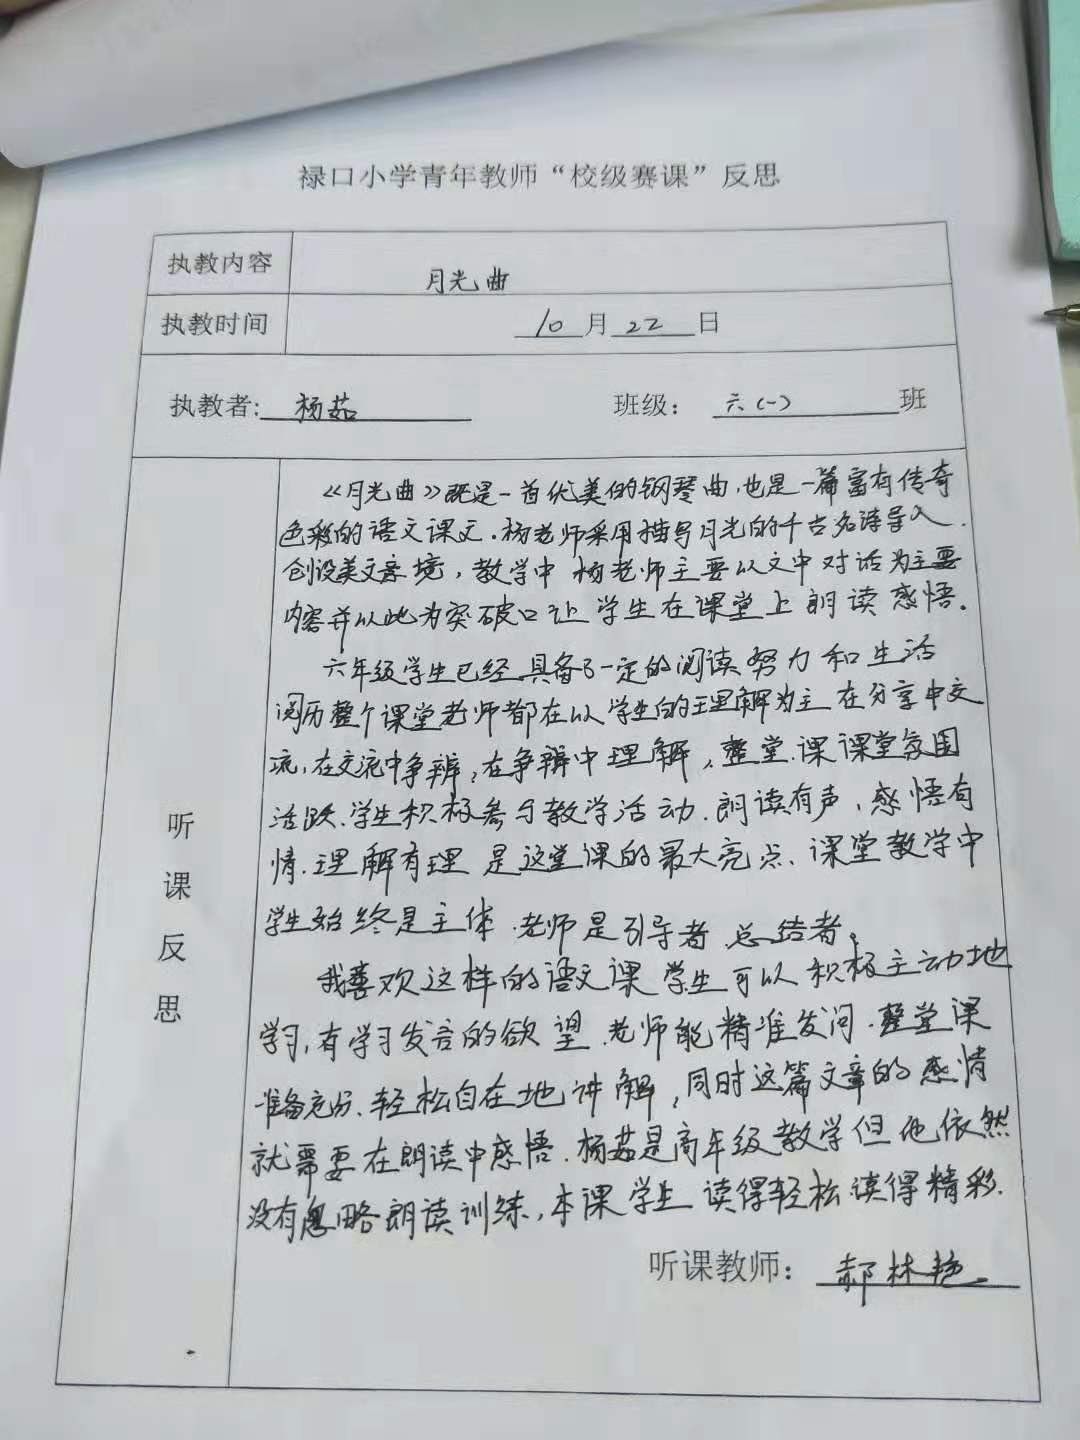 禄口小学青年教师“校级赛课”反思
执教内容 月光曲
执教时间 10月22日
执教者: 杨茹 班级: 六(一)班
听课反思
《月光曲》既是一首优美的钢琴曲,也是一篇富有传奇
色彩的语文课文.杨老师采用描写月光的千古名诗导入.
创设美文意境,教学中杨老师主要以文中对话为主要
内容并以此为突破口让学生在课堂上朗读感悟.
六年级学生已经具备了一定的阅读努力和生活
阅历整个课堂老师都在以学生的理解为主在分享中交
流,在交流中争辨,在争辨中理解,整堂课课堂氛围
活跃.学生积极参与教学活动.朗读有声,感悟有
情.理解有理是这堂课的最大亮点.课堂教学中
学生始终是主体.老师是引导者.总结者。
我喜欢这样的语文课学生可以积极主动地
学习,有学习发言的欲望.老师能精准发问.整堂课
准备充分.轻松自在地讲解,同时这篇文章的感情
就需要在朗读中感悟.杨茹是高年级教学但他依然
没有忽略朗读训练,本课学生读得轻松.读得精彩.
听课教师: 郝林艳